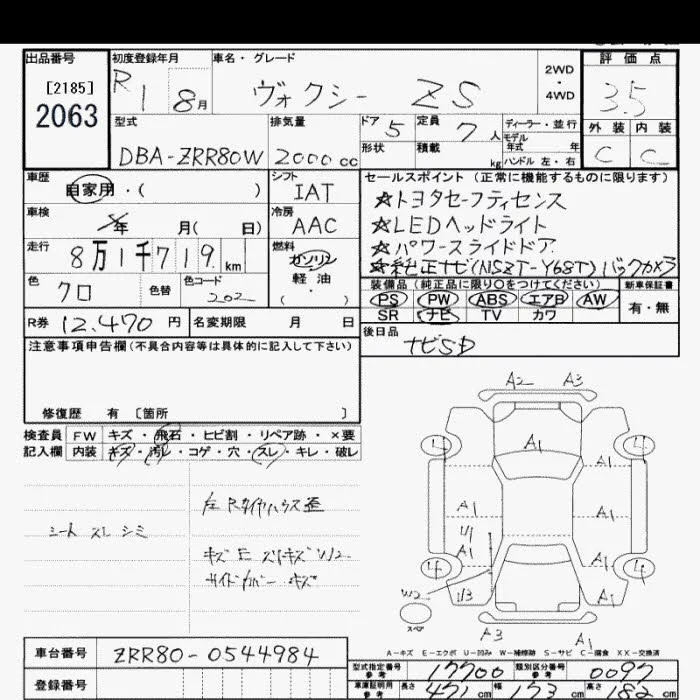 出品番号 初度登録年月 車名・グレード 2WD・4WD 評価点
[2185]
2063
R1 8月 ヴォクシー ZS 3.5
型式 排気量 ドア 5 定員 7人 ディーラー・並行 外装 内装
モデル年式 年
DBA-ZRR80W 2000cc 形状 積載 kg ハンドル 左・右 C C
車歴 自家用・( ) シフト IAT セールスポイント (正常に機能するものに限ります)
☆トヨタセーフティセンス
車検 年 月( 日) 冷房 AAC ☆LEDヘッドライト
☆パワースライドドア
走行 8万1千719km 燃料 ガソリン 軽油 ・( ) ☆純正ナビ(NSZT-Y68T)バックカメラ
色 クロ 色替 色コード 202 装備品 (純正品に限り○をつけてください) 新車保証書
PS PW ABS エアB AW 有・無
SR ナビ TV カワ
R券 12,470円 名変期限 月 日 後日品
ナビSD
注意事項申告欄(不具合内容等は具体的に記入して下さい)
修復歴 有 〔箇所 〕
検査員 FW キズ・飛石・ヒビ割・リペア跡・×要
記入欄 内装 キズ・汚レ・コゲ・穴・スレ・キレ・破レ
シート スレ シミ
キズ E スリキズ W2
A2 A3
A1
A1
A1 A1
U1
A1 A1
W2
U3 A1
スペア
A3 A1
A-キズ E-エクボ U-凹み W-補修跡 S-サビ C-腐食 XX-交換済
車台番号 ZRR80-0544984
登録番号
型式指定番号 参考 17700 類別区分番号 参考 0097
車庫証明用 参考 長さ 471cm 幅 173cm 高さ 182cm